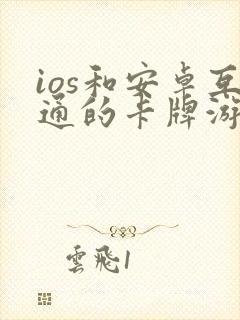 ios和安卓互
通的卡牌游
雲飛1